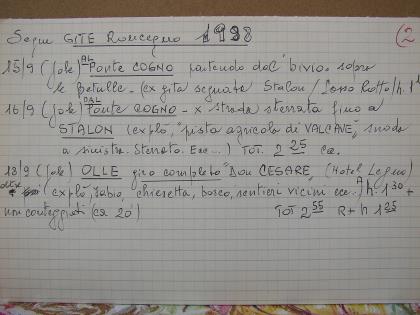 Segue GITE Roncegno 1998 (2
15/9 (sole) AL PONTE COGNO partendo dal bivio sopra
le betulle - (ex gita segnata Stalon / Sasso Rotto / h. 1
16/9 (sole) DAL PONTE COGNO - x strada sterrata fino a
STALON (explò, "pista agricola di VALCAVE", snoda
a sinistra. Sterrato. Ecc...) TOT. 2 25 ca.
18/9 (sole) OLLE giro completo "Don CESARE" (Hotel Legno)
(explò, chiesetta, bosco, sentieri vicini ecc..) h. 1 30 +
oltre non conteggiati (ca 20') TOT 2 55 R + h 1 25